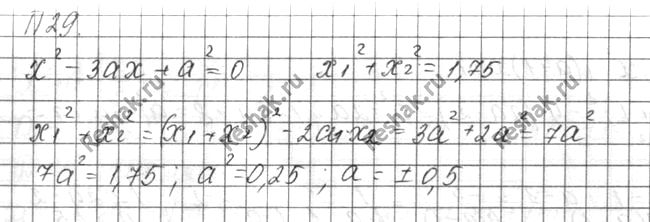 N29.
x² - 3ax + a² = 0 x₁² + x₂² = 1,75
x₁² + x₂² = (x₁ + x₂)² - 2x₁x₂ = 3a² + 2a² = 7a²
7a² = 1,75 ; a² = 0,25 ; a = ±0,5
Reshak.ru Reshak.ru Reshak.ru Reshak.ru